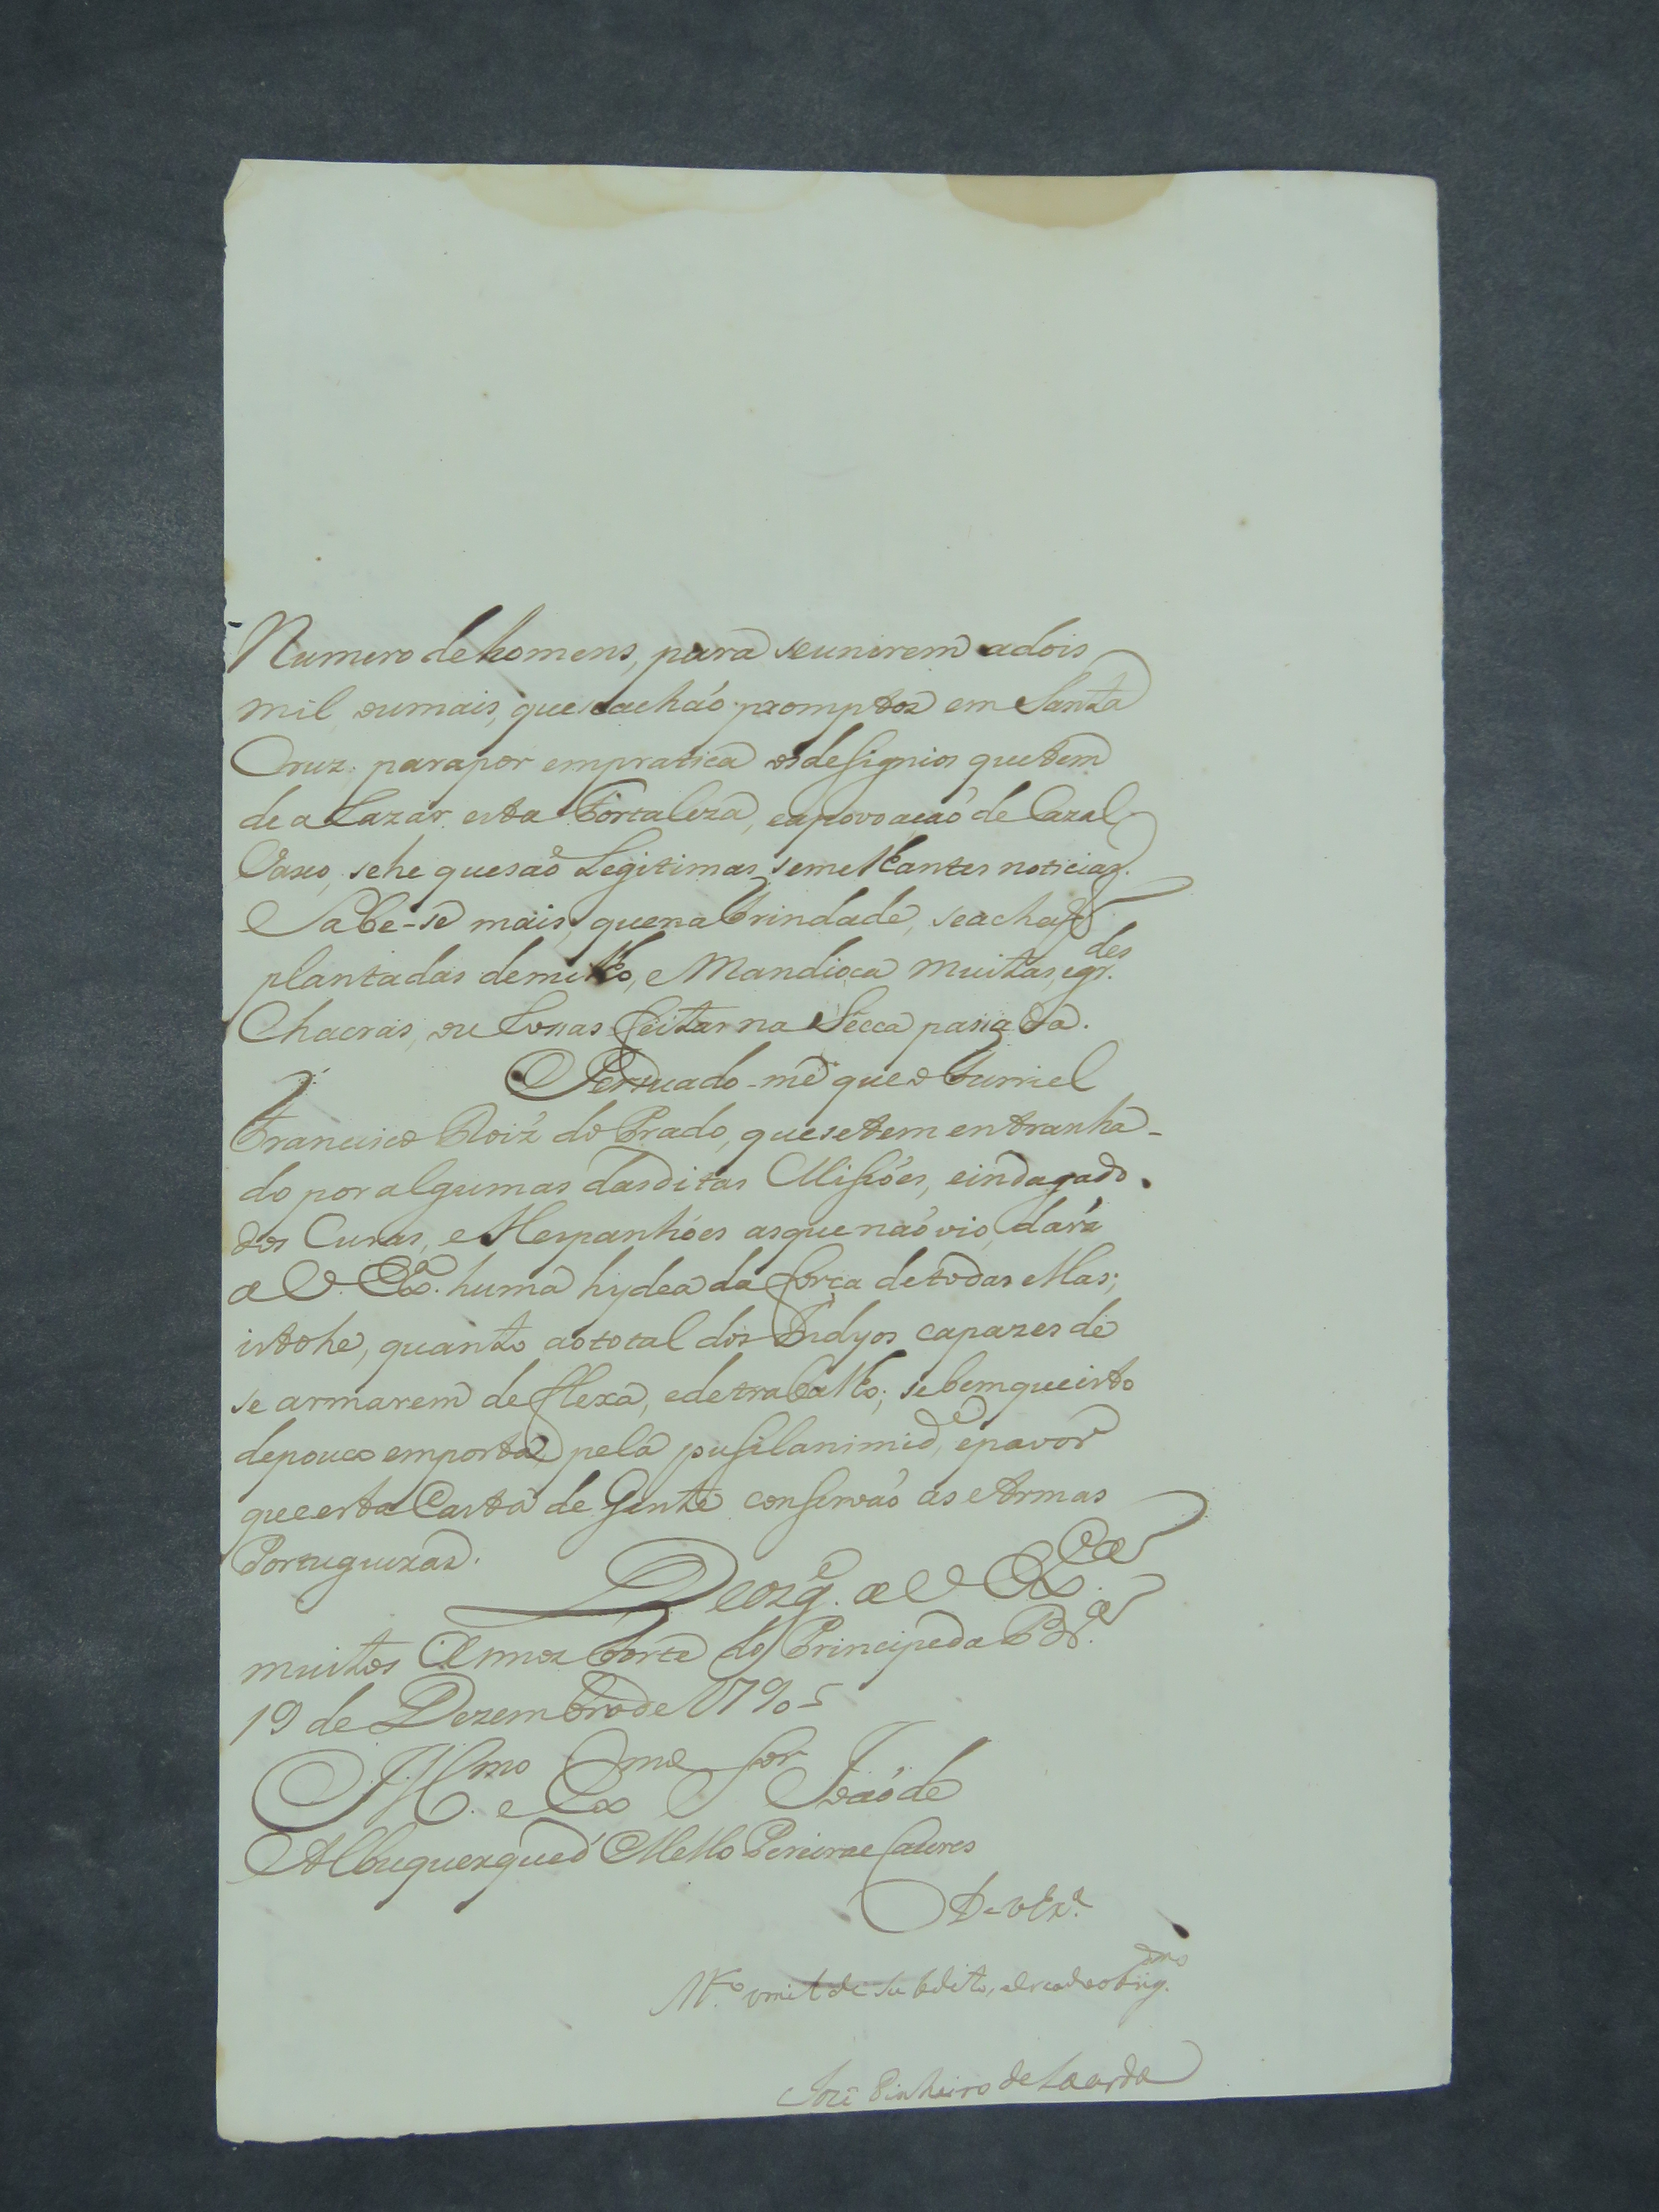 Numero de homens, para se unirem a dois
mil, ou mais, que se achaõ promptos em Santa
Cruz: para por em pratica os designios que tem
de a Lazar esta Fortaleza, e a povoaçaõ de Cazal
Vasco, se he que saõ Legitimas semelhantes noticias.
Sabe-se mais, que na Trindade, se achaõ
plantadas de milho, e Mandioca muitas, e gr.des
Chacras, ou Rossas feitas na Secca passada.
Persuado-me que o Furriel
Francisco Roiz do Prado, que se tem entranha-
do por algumas das ditas Missões, e indagado
dos Curas, e Hespanhóes as que naõ vio, dará
a V. Ex.ª huma hydea da força de todas ellas;
isto he, quanto ao total dos Indyos capazes de
se armarem de flexa, e de trabalho; se bem que isto
de pouco emporta, pela pusilanimid.e, e pavor
que esta Casta de Gente conservaõ as Armas
Portuguezas.
Deos g.e a V Ex.ca
muitos Annos Forte do Principe da B.ra
19 de Dezembro de 1795
Ill.mo e Ex.mo Sor Joaõ de
Albuquerque d' Mello Pereira e Caceres
De V Ex.ª
M.to omilde Subdito, e criado obrig.dmo
Joze Pinheiro de Lacerda